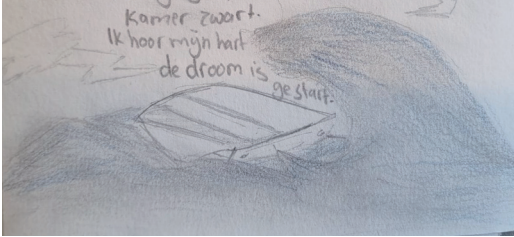 Kamer zwart.
Ik hoor mijn hart
de droom is
gestart.